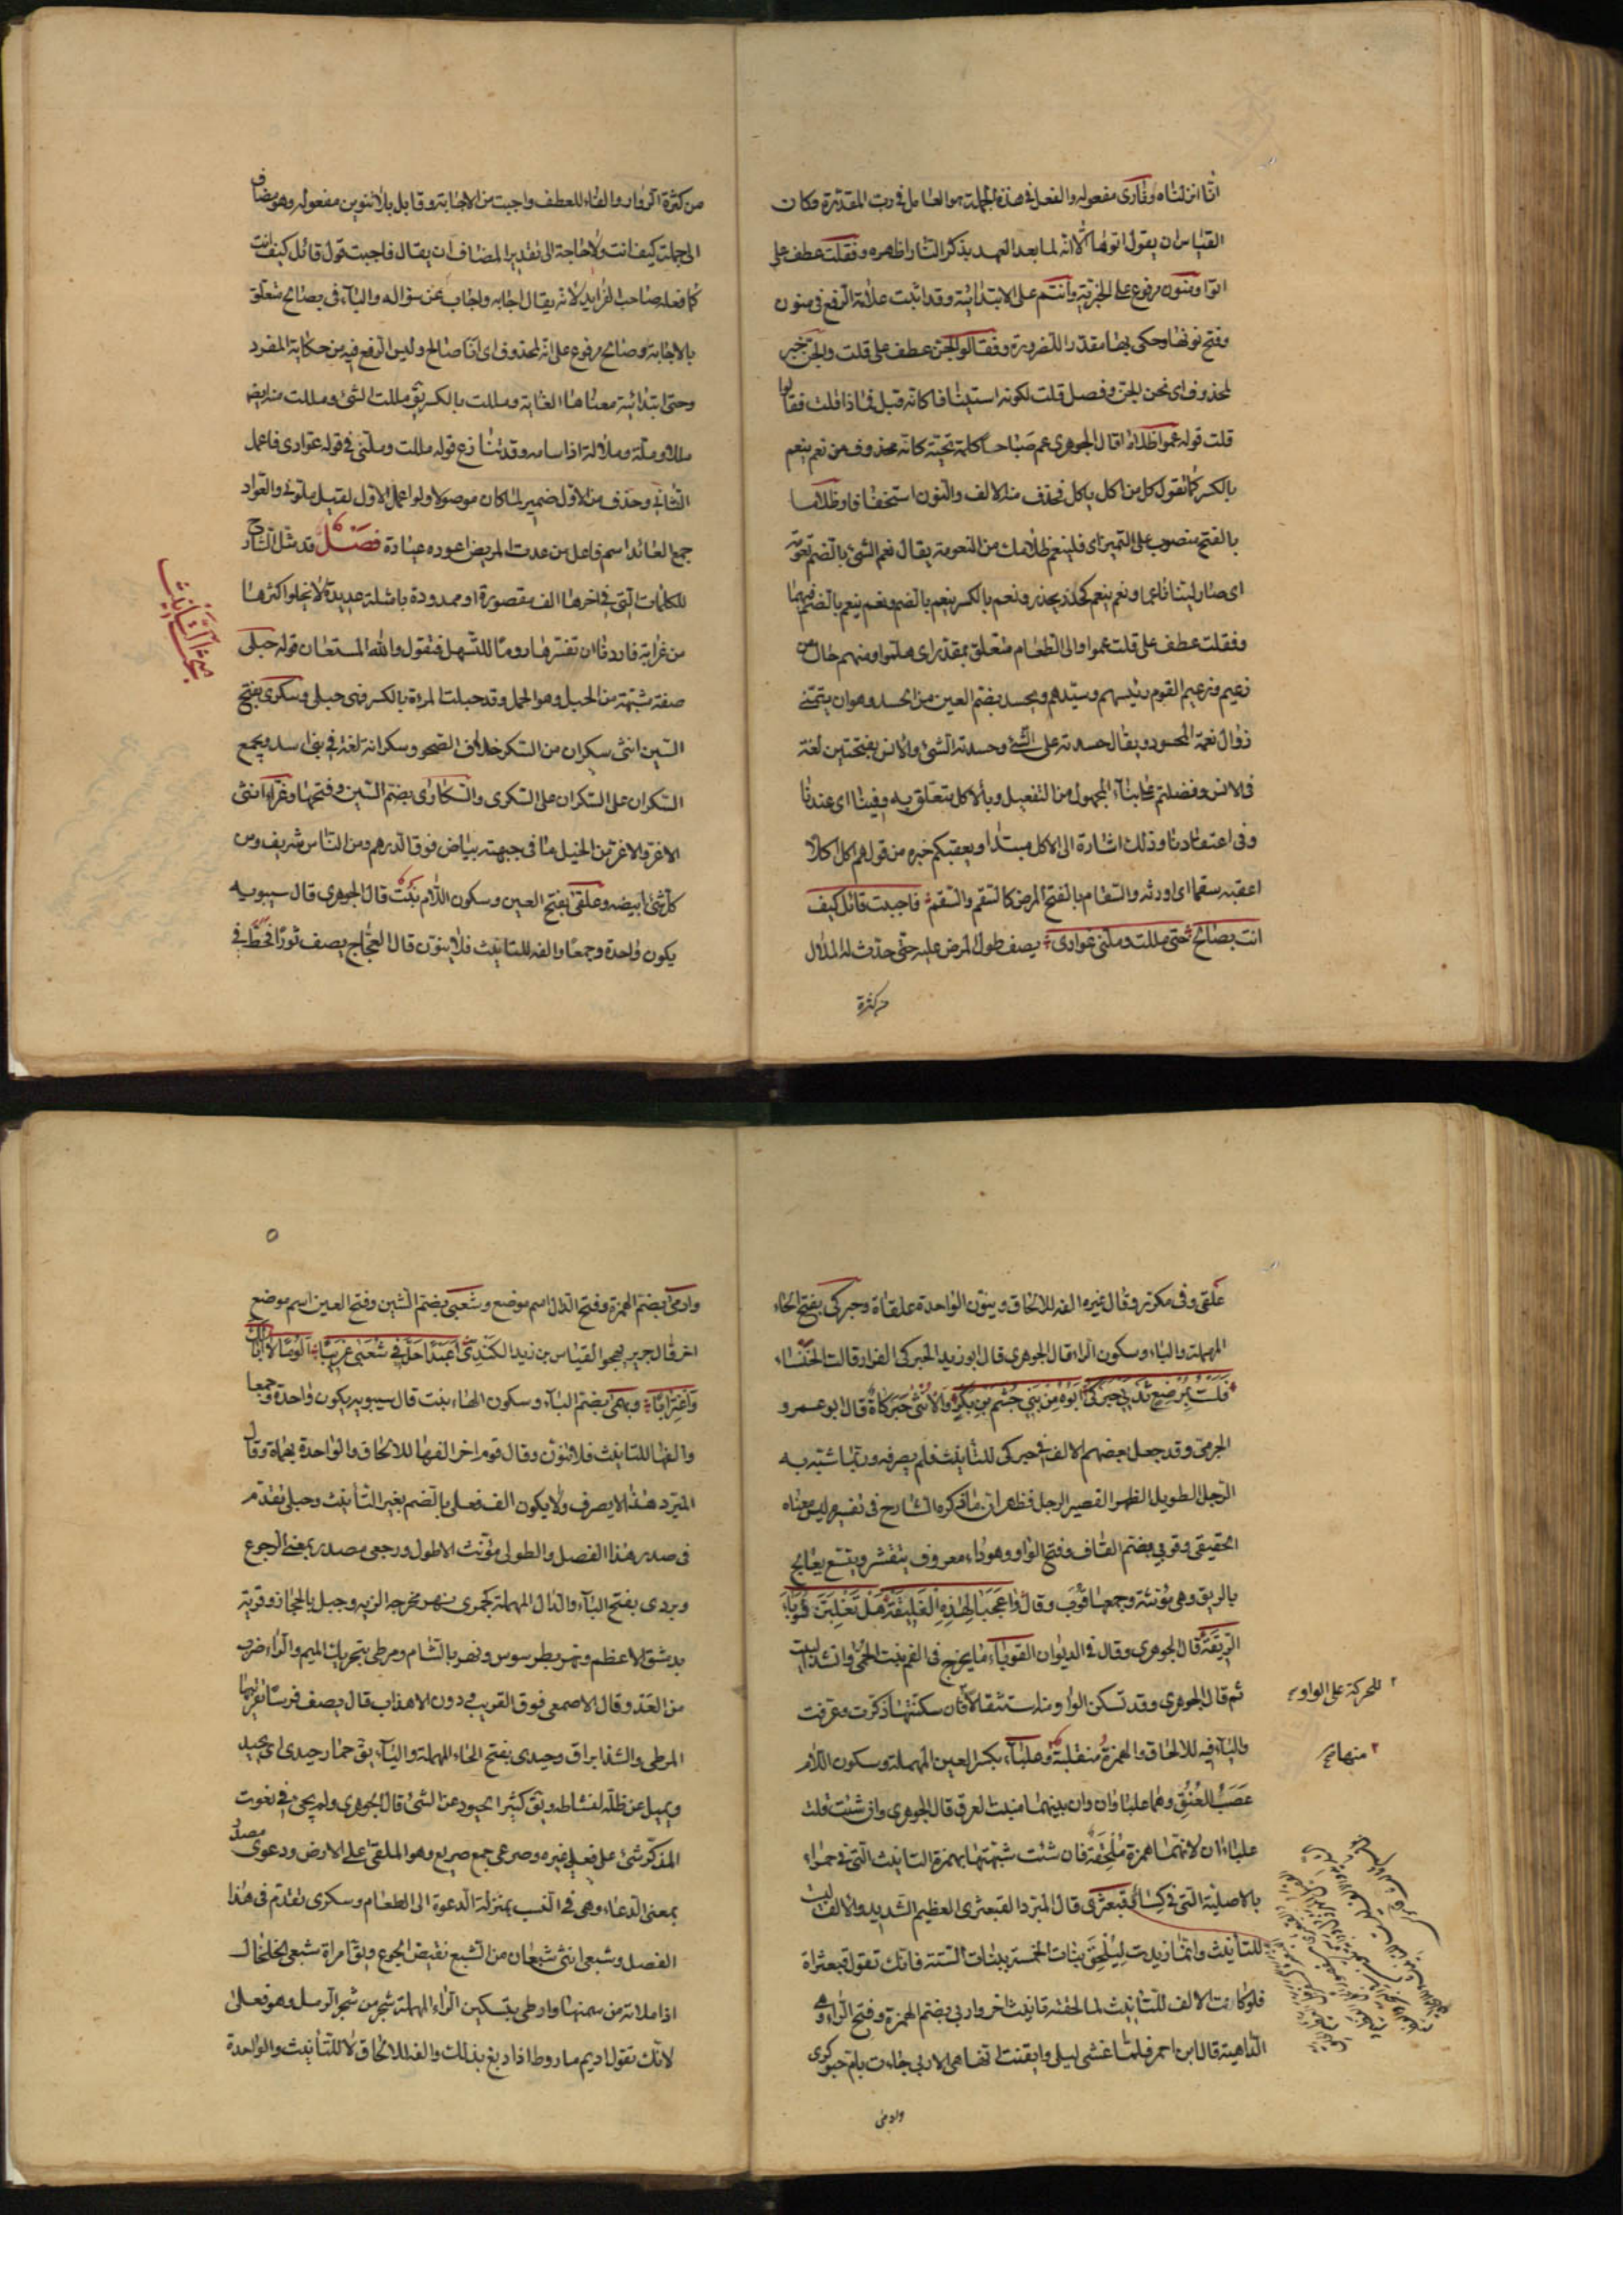 انا انزلناه وناري مفعوله والفعل في هذه الجملة هو العامل في رب المقدرة وكان
القياس ان يقول اتوها لانه لما بعد العهد بذكر النار اظاهره وفقلت عطف على
اتوا ومنون مرفوع على الخبرية وانتم على الابتدائية وقد اثبت علامة الرفع في منون
وفتح نونها وحكى بها مقدرا للضرورة وفقالوا الجن عطف على قلت والجن خبر
لمحذوف اي نحن الجن وفصل قلت لكونه استينافا كانه قيل فماذا قلت فقالوا
قلت قوله عموا ظلاما قال الجوهري عم صباحا كلمة تحية كانه محذوف من نعم ينعم
بالكسر كما تقول كل من اكل ياكل فحذف منه الالف والنون استخفافا وظلاما
بالفتح منصوب على التميز اي فلينعم ظلامك من النعومة يقال نعم الشيء بالضم نعومة
اي صار لينا ناعما ونعم ينعم كحذر يحذر ونعم بالكسر ينعم بالضم ونعم ينعم بالضم فيهما
وفقلت عطف على قلت عموا والى الطعام متعلق بمقدر اي هلموا ومنهم حال من
زعيم وزعيم القوم رئيسهم وسيدهم ويحسد بضم العين من الحسد وهو ان يتمنى
زوال نعمة المحسود ويقال حسدته على الشيء وحسدته الشيء والانس بفتحتين لغة
في الانس وفضلتم علينا المجهول من التفعيل وبالاكل متعلق به وفينا اي عندنا
وفي اعتقادنا وذلك اشارة الى الاكل مبتدا ويعقبكم خبره من قولهم اكل اكلا
اعقبه سقما اي اورثه والسقام بالفتح المرض كالسقم والسقم فاجبت قائل كيف
انت بصالح حتى مللت وملني عوادي يصف طول المرض عليه حتى حدث له الملال
من كثرة
من كثرة الزوار والفاء للعطف واجبت من الاجابة وقابل بلا تنوين مفعوله وهو مضاف
الى جملة كيف انت ولا حاجة الى تقدير المضاف ان يقال فاجبت قول قائل كيف انت
كما فعله صاحب الفرايد لانه يقال اجابه واجاب عن سؤاله والباء في بصالح متعلق
بالاجابة وصالح مرفوع على انه لمحذوف اي انا صالح وليس الرفع فيه من حكاية المفرد
وحتى ابتدائية معناها الغاية ومللت بالكسر يق مللت الشيء ومللت منه ايضا
مللا وملة وملالة اذا سامه وقد تنازع قوله مللت وملني في قوله عوادي فاعمل
الثاني وحذف من الاول ضمير لما كان موصولا ولو اعمل الاول لقيل ملوني والعواد
جمع العائد اسم فاعل من عدت المريض اعوده عيادة فصل قد مثل الشارح
للكلمات التي في اخرها الف مقصورة او ممدودة بامثلة عديدة لا يخلو اكثرها
من غرابة فاردنا ان نفسرها روما للتسهل فنقول والله المستعان قوله حبلى
صفة مشبهة من الحبل وهو الحمل وقد حبلت المرءة بالكسر فهي حبلى وسكرى بفتح
السين انثى سكران من السكر خلاف الصحو وسكرانة لغة في بني اسد ويجمع
السكران على السكران على السكرى والسكارى بضم السين وفتحها وغراء انثى
الاغر والاغر من الخيل ما في جبهته بياض فوق الدرهم ومن الناس شريف ومن
كل شيء ابيضه وعلقى بفتح العين وسكون اللام نبت قال الجوهري قال سيبويه
يكون واحدة وجمعا والفه للتانيث فلا ينون قال العجاج يصف ثورا فحط في
مبحث التانيث
علقى وفي مكر وقال غيره الفه للالحاق وينون الواحدة علقاة وحبركى بفتح الحاء
المهملة والباء وسكون الراء قال الجوهري قال ابو زيد الحبركى القراد قالت الخنساء
فلست بمرضع ثديي حبركى ابوه من بني جشم بن بكر والانثى حبركاة قال ابو عمرو
الجرمي وقد جعل بعضهم الالف في حبركى للتأنيث فلم يصرفه وربما شبه به
الرجل الطويل الظهر القصير الرجل فظهر ان ما ذكره الشارح في تفسيره ليس معناه
الحقيقي وقوبى بضم القاف وفتح الواو وهو داء معروف يتقشر ويتسع يعالج
بالريق وهي مؤنثة وجمعها قوب وقال واعجبا لهذه الفليقة هل تغلبن القوباء
الريقة قال الجوهري وقال في الديوان القوباء ما يخرج في الفم غب الحمى وانشد البيت
ثم قال الجوهري وقد تسكن الواو منها استثقالا فان سكنتها ذكرت وصرفت
والباء فيه للالحاق والهمزة منقلبة وعلباء بكسر العين المهملة وسكون اللام
عصب العنق وهما علباوان وان بينهما منبت لعرف قال الجوهري وان شئت قلت
علباءان لانهما همزة ملحقة فان شئت شبهتها بهمزة التانيث التي في حمراء
بالاصلية التي في كساء وقبعثرى قال المبرد القبعثرى العظيم الشديد والالف ليست
للتأنيث وانما زيدت ليلحق بنات الخمسة ببنات الستة فانك تقول قبعثراة
فلو كانت الالف للتأنيث لما لحقته تانيث اخر واربى بضم الهمزة وفتح الراء وهي
الداهية قال ابن احمر فلما غشى ليلي وايقنت انها هي الاربى جاءت بام حبوكرى
للحركة على الواو
منها
وادمى
وادمى بضم الهمزة وفتح الدال اسم موضع وشعبى بضم الشين وفتح العين اسم موضع
اخر قال جرير يهجو القياس بن زيد الكندي اعبدا حل في شعبى غريبا الؤما لا ابالك
واغترابا وبهمى بضم الباء وسكون الهاء نبت قال سيبويه يكون واحدة وجمعا
والفها للتانيث فلا تنون وقال قوم اخر الفها للالحاق والواحدة بهماة وقال
المبرد هذا لا يعرف ولا يكون الف فعلى بالضم بغير التأنيث وحبلى تقدم
في صدر هذا الفصل والطولى مؤنث الاطول ورجعى مصدر بمعنى الرجوع
وبردى بفتح الباء والدال المهملة كجمزى نهر مخرجه الزبد وجبل بالحجاز وقرية
بدمشق الاعظم ونهر بطرسوس ونهر بالشام ومرطى بتحريك الميم والراء ضرب
من العدو وقال الاصمعي فوق التقريب ودون الاهذاب قال يصف فرسا تقريبها
المرطى والشد ابراق وحيدى بفتح الحاء المهملة والياء يق حمار حيدى اي يحيد
ويميل عن ظله لنشاطه ويق كثير الحيود عن الشيء قال الجوهري ولم يجئ في نعوت
المذكر شيء على فعلى غيره وصرعى جمع صريع وهو الملقى على الارض ودعوى مصدر
بمعنى الدعاء وهي في النسب بمنزلة الدعوة الى الطعام وسكرى تقدم في هذا
الفصل وشبعى انثى شبعان من الشبع نقيض الجوع ويق امراة شبعى الخلخال
اذا ملاته من سمنها وارطى بتسكين الراء المهملة شجر من شجر الرمل وهو فعلى
لانك تقول اديم ماروط اذا دبغ بذلك والفه للالحاق لا للتأنيث والواحدة